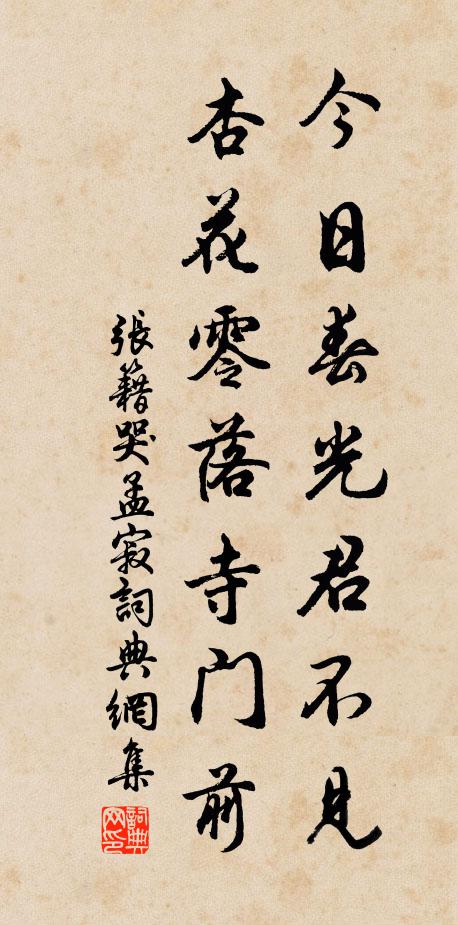 今日春光君不見
杏花零落寺門前
張籍哭孟寂詞典網集
詞典网印